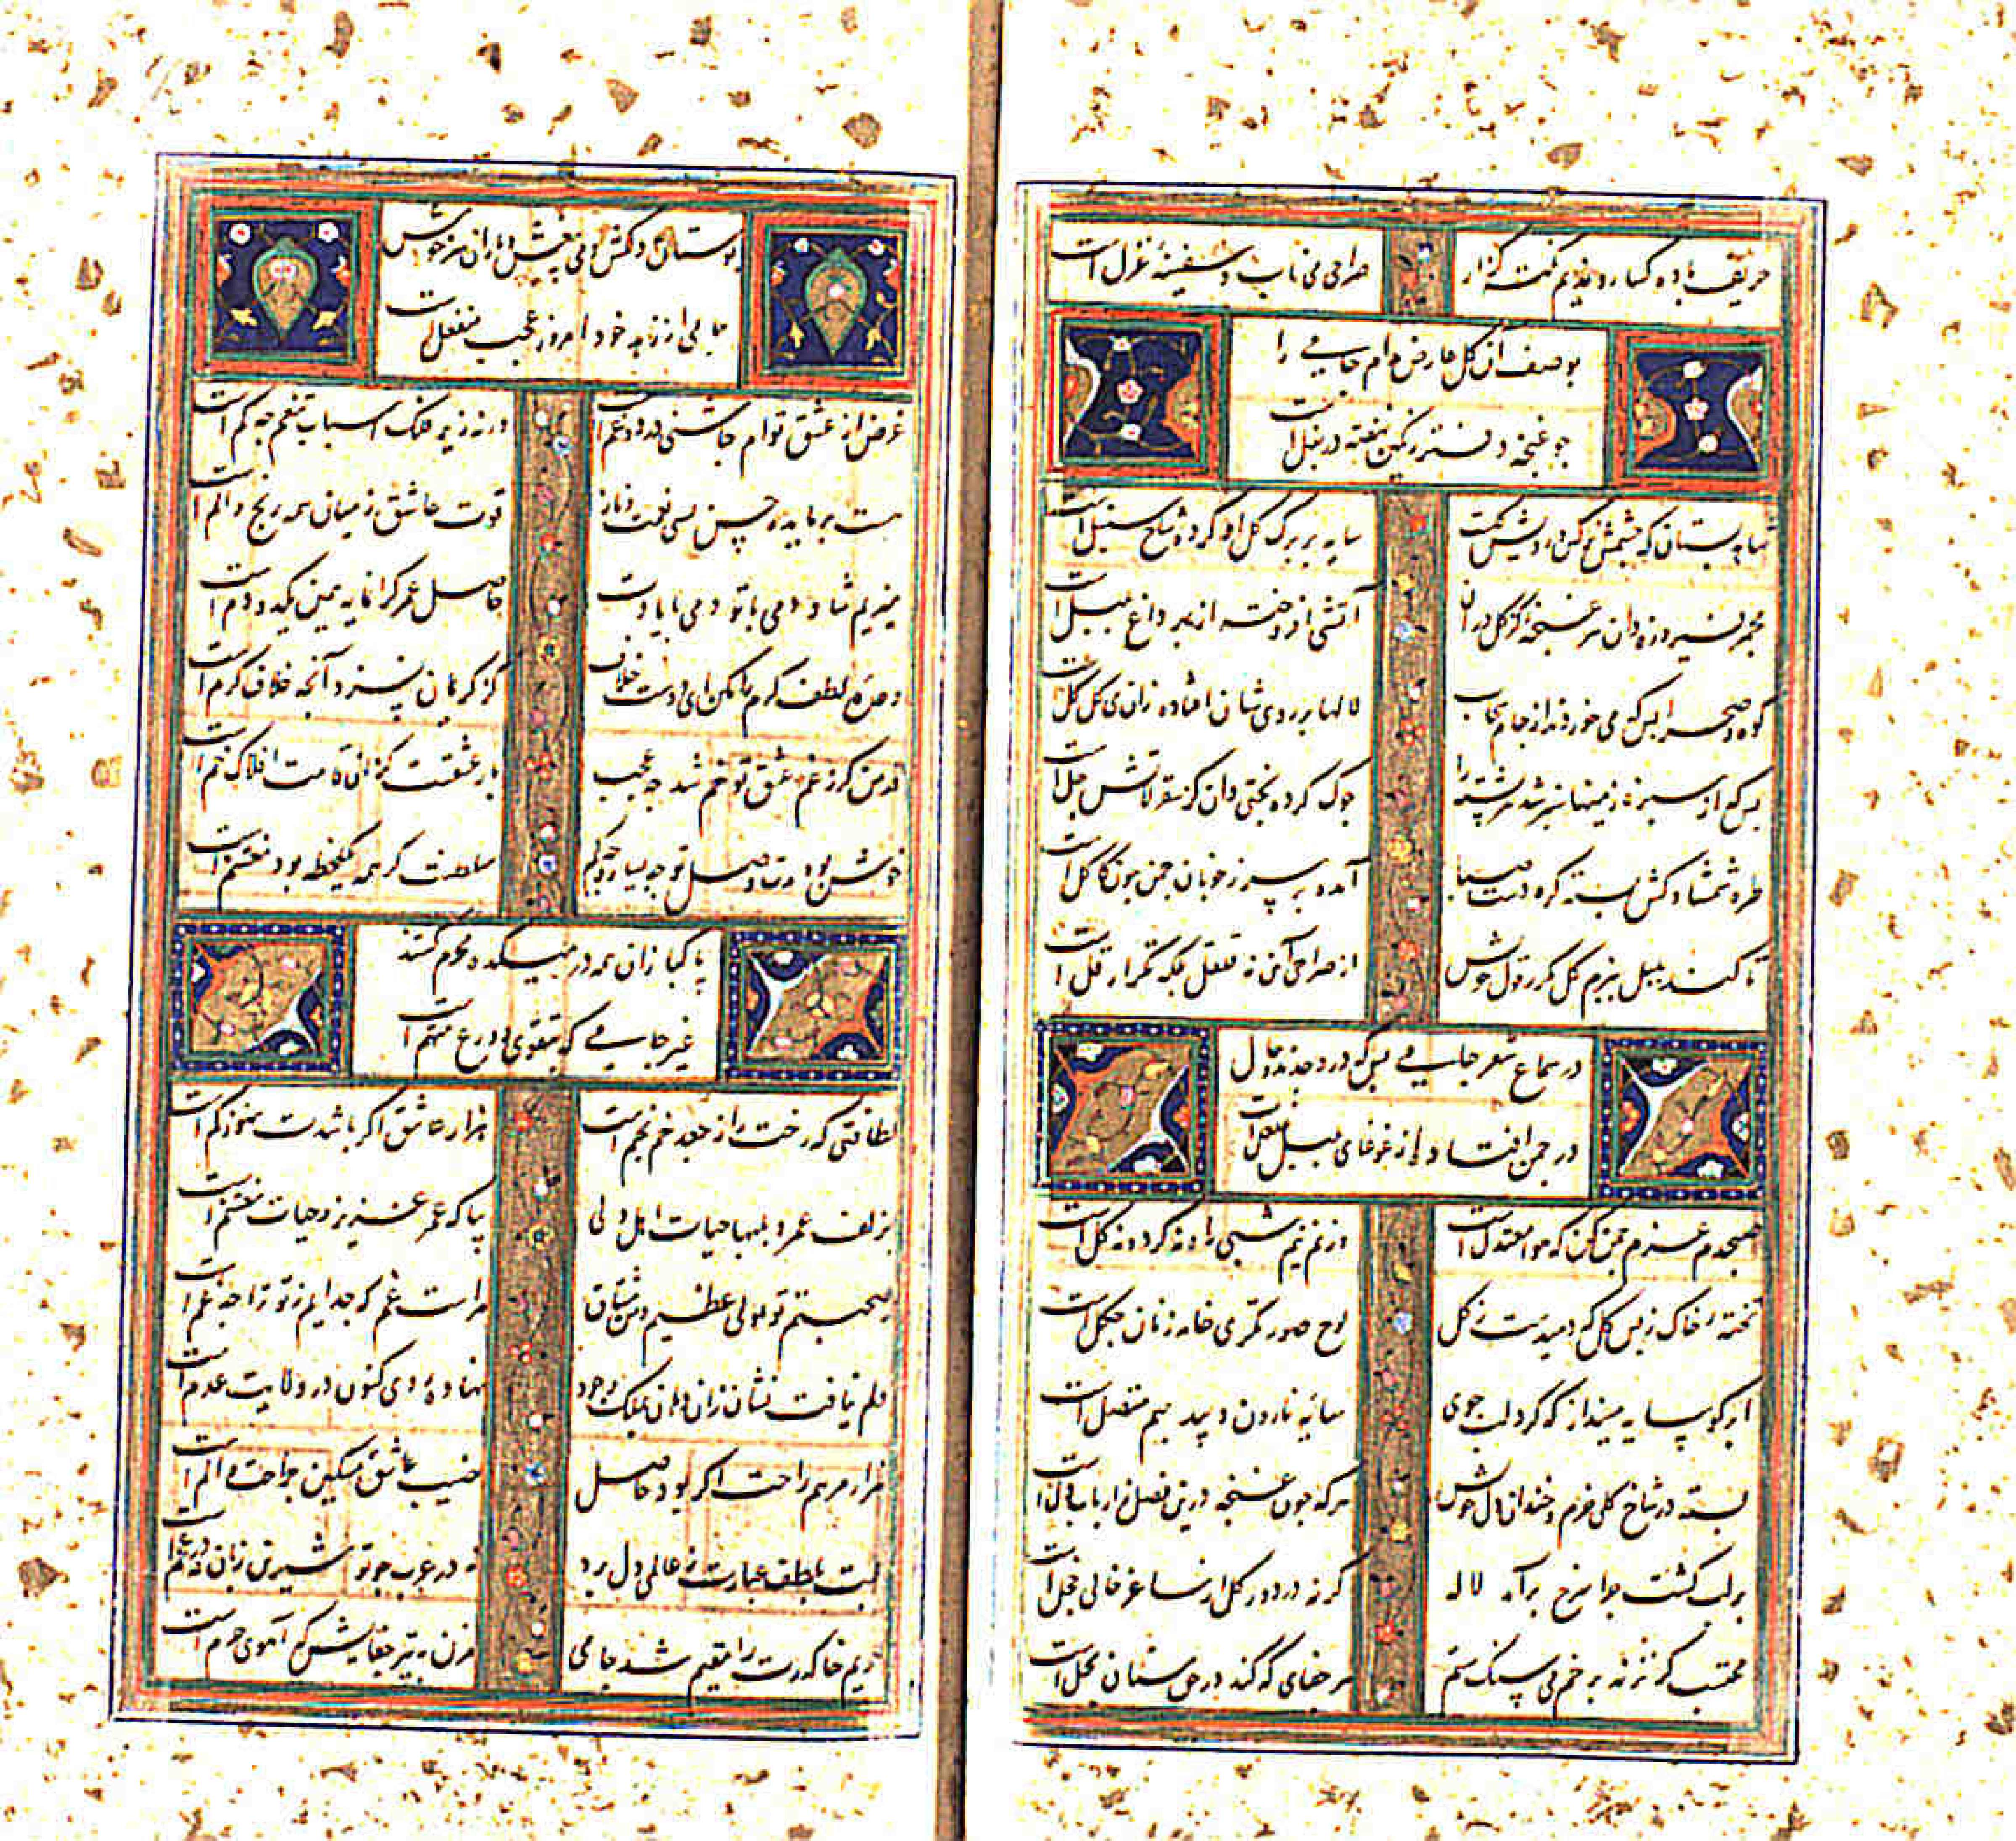 حریف باده کسار و ندیم نکته گزار
صراحی می ناب و سفینهٔ غزل است
بوصف آن گل عارض مدام جامی را
چو غنچه دفتر رنگین نهفته در بغل است
شاهد بستان که چشمش نرگس
سایه بر برگ گل او کرده شاخ سنبل است
مجمر فیروزه دان هر غنچه کز گل در آن
آتشی افروخته از بهر داغ بلبل است
کوه و صحرا بس که می خوردند از جام سحاب
لالها بر روی شان افتاده زان می گل گل است
بس که از سبزه زمینها سبز شد هر پشته را
کوک کرده بختی دان کز سقرلاتش جل است
طره شمشاد کش بسته گره دست صبا
آمده بر سر ز خوبان چمن چون کاکل است
تا کند بلبل ببزم گل مکرر قول خوش
از صراحی آن نه قلقل بلکه تکرار قل است
در سماع شعر جامی بس که در وجدند و حال
در چمن افتاده از غوغای بلبل غلغل است
صبحدم عزم چمن کن که هوا معتدل است
وز نم نیم شبی راه نه گرد و نه گل است
تختهٔ خاک ز بس گل که دمیدست ز گل
لوح صورتگری خانه زنان چگل است
ابر کو سایه مینداز که گرد لب جوی
سایه نارون و بید بهم متصل است
بسته در شاخ گلی خرم و خندان دل خویش
هر که چون غنچه درین فصل ز ارباب دل است
بر لب کشت چرا سرخ برآمد لاله
گر نه در دور گل از ساغر خالی خجل است
محتسب گر نزند بر خم می سنگ ستم
هر جفای که کند در حق مستان بحل است
بوستان دلکش و وقت خوش و یاران سرخوش
جامی از زهد خود امروز عجب منفعل است
غرض از عشق توام چاشنی درد و غم است
ورنه زیر فلک اسباب تنعم چه کم است
هست بر مایده حسن بسی نعمت و ناز
قوت عاشق ز میان همه رنج و الم است
میزیم شاد دمی با تو دمی با یادت
حاصل عمر گرانمایه همین یک دو دم است
وصف لطف و کرم با مکن ای دوست خلاف
کز کریمان نسزد آنچه خلاف کرم است
قد من گر ز غم عشق تو خم شد چه عجب
بار عشقت کزان قامت افلاک خم است
خوش بود مدت وصل تو چه بسیار و چه کم
سلطنت گر همه یکلحظه بود مغتنم است
پاکبازان همه در میکده محرم گشتند
غیر جامی که بتقوی و ورع متهم است
لطافتی که رخت را ز جعد خم بخم است
هزار عاشق اگر باشدت هنوز کم است
بزلف عمر و بلبها حیات اهل دلی
بیا که عمر عزیز و حیات مغتنم است
بصحبتم تو ملولی عظیم و من مشتاق
مراست غم که جدایم ز تو ترا چه غم است
دلم نیافت نشان زان دهان بملک وجود
نهاده روی کنون در ولایت عدم است
هزار مرهم راحت اگر بود حاصل
نصیب عاشق مسکین جراحت و الم است
لبت بلطف عبارت ز عالمی دل برد
نه در عرب چو تو شیرین زبان نه در عجم است
حریم خاک درت را مقیم شد جامی
مزن به تیر جفایش که آهوی حرم است